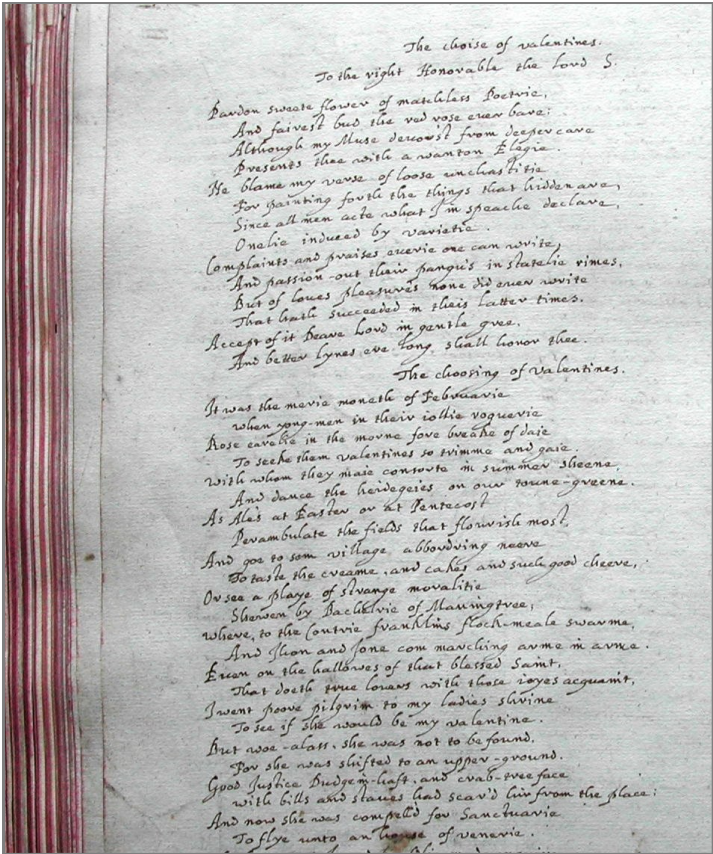 The choise of valentines.
To the right Honorable the Lord S.
Pardon sweete flower of matchless Poetrie,
And fairest bud the red rose euer bare;
Although my Muse deuorst from deeper care
Presents thee with a wanton Elegie.
Ne blame my verse of loose unchastitie
For painting forth the things that hidden are,
Since all men acte what I in speache declare,
Onelie induced by varietie.
Complaints and praises euerie one can write,
And passion-out their pangu's in statelie rimes,
But of loues pleasure's none did euer write
That hath succeeded in theis latter times.
Accept of it Deare Lord in gentle gree,
And better lynes ere long shall honor thee.
The choosing of valentines.
It was the merie moneth of Februarie
When yong-men in their iollie roguerie
Rose earelie in the morne fore breake of daie
To seeke them valentines so trimme and gaie.
With whom they maie consorte in summer sheene,
And dance the heidegeies on our toune-greene.
As Ale's at Easter or at Pentecost
Perambulate the fields that flourish most,
And goe to som village abbordring neere
To taste the creame, and cakes and such good cheere,
Or see a playe of strange moralitie
Shewen by Bachelrie of Maningtree,
Where, to the Contrie franklins flock-meale swarme,
And Jhon and Jone com marching arme in arme.
Euen on the hallowes of that blessed Saint,
That doeth true louers with those ioyes acquaint,
I went poore pilgrim to my ladies shrine
To see if she would be my valentine.
But woe-alass, she was not to be found,
For she was shifted to an upper-ground.
Good Justice Dudgein-haft, and crab-tree face
With bills and staues had scar'd hir from the place:
And now she was compell'd for Sanctuarie
To flye unto an house of venerie.